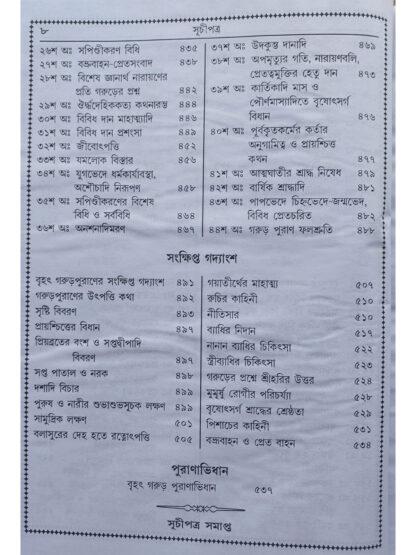 ৮
সূচীপত্র
২৬শ অঃ সপিণ্ডীকরণ বিধি ৪৩৫
২৭শ অঃ বভ্রুবাহন-প্রেতসংবাদ ৪৩৮
২৮শ অঃ বিশেষ জ্ঞানার্থ নারায়ণের
প্রতি গরুড়ের প্রশ্ন ৪৪২
২৯শ অঃ ঔর্দ্ধদেহিককৃত্য কথনারম্ভ ৪৪৪
৩০শ অঃ বিবিধ দান মাহাত্ম্যাদি ৪৪৬
৩১শ অঃ বিবিধ দান প্রশংসা ৪৪৯
৩২শ অঃ জীবোৎপত্তি ৪৫২
৩৩শ অঃ যমলোক বিস্তার ৪৫৬
৩৪শ অঃ যুগভেদে ধর্মকার্যাবস্থা,
অশৌচাদি নিরূপণ ৪৫৮
৩৫শ অঃ সপিণ্ডীকরণের বিশেষ
বিধি ও সর্ববিধি ৪৬৪
৩৬শ অঃ অনশনাদিমরণ ৪৬৭
৩৭শ অঃ উদকুম্ভ দানাদি ৪৬৯
৩৮শ অঃ অপমৃত্যুর গতি, নারায়ণবলি,
প্রেতত্বমুক্তির হেতু দান ৪৭৩
৩৯শ অঃ কার্তিকাদি মাস ও
পৌর্ণমাস্যাদিতে বৃষোৎসর্গ
বিধান ৪৭৬
৪০শ অঃ পূর্বকৃতকর্মের কর্তার
অনুগামিত্ব ও প্রায়শ্চিত্ত
কথন ৪৭৭
৪১শ অঃ আত্মঘাতীর শ্রাদ্ধ নিষেধ ৪৭৯
৪২শ অঃ বার্ষিক শ্রাদ্ধাদি ৪৮১
৪৩শ অঃ পাপভেদে চিহ্নভেদে-জন্মভেদ,
বিবিধ প্রেতচরিত ৪৮২
৪৪শ অঃ গরুড় পুরাণ ফলশ্রুতি ৪৮৮
সংক্ষিপ্ত গদ্যাংশ
বৃহৎ গরুড়পুরাণের সংক্ষিপ্ত গদ্যাংশ ৪৯১
গরুড়পুরাণের উৎপত্তি কথা ৪৯২
সৃষ্টি বিবরণ ৪৯৩
প্রায়শ্চিত্তের বিধান ৪৯৭
প্রিয়ব্রতের বংশ ও সপ্তদ্বীপাদি
বিবরণ ৪৯৭
সপ্ত পাতাল ও নরক ৪৯৮
দশাদি বিচার ৪৯৯
পুরুষ ও নারীর শুভাশুভসূচক লক্ষণ ৪৯৯
সামুদ্রিক লক্ষণ ৫০১
বলাসুরের দেহ হতে রত্নোৎপত্তি ৫০৫
গয়াতীর্থের মাহাত্ম্য ৫০৭
রুচির কাহিনী ৫১০
নীতিসার ৫১০
ব্যাধির নিদান ৫১৭
নানান ব্যাধির চিকিৎসা ৫২২
স্ত্রীব্যাধির চিকিৎসা ৫২৩
গরুড়ের প্রশ্নে শ্রীহরির উত্তর ৫২৪
মুমূর্ষু রোগীর পরিচর্য্যা ৫২৮
বৃষোৎসর্গ শ্রাদ্ধের শ্রেষ্ঠতা ৫২৯
পিশাচের কাহিনী ৫৩১
বভ্রুবাহন ও প্রেত বাহন ৫৩৪
পুরাণাভিধান
বৃহৎ গরুড় পুরাণাভিধান ৫৩৭
সূচীপত্র সমাপ্ত